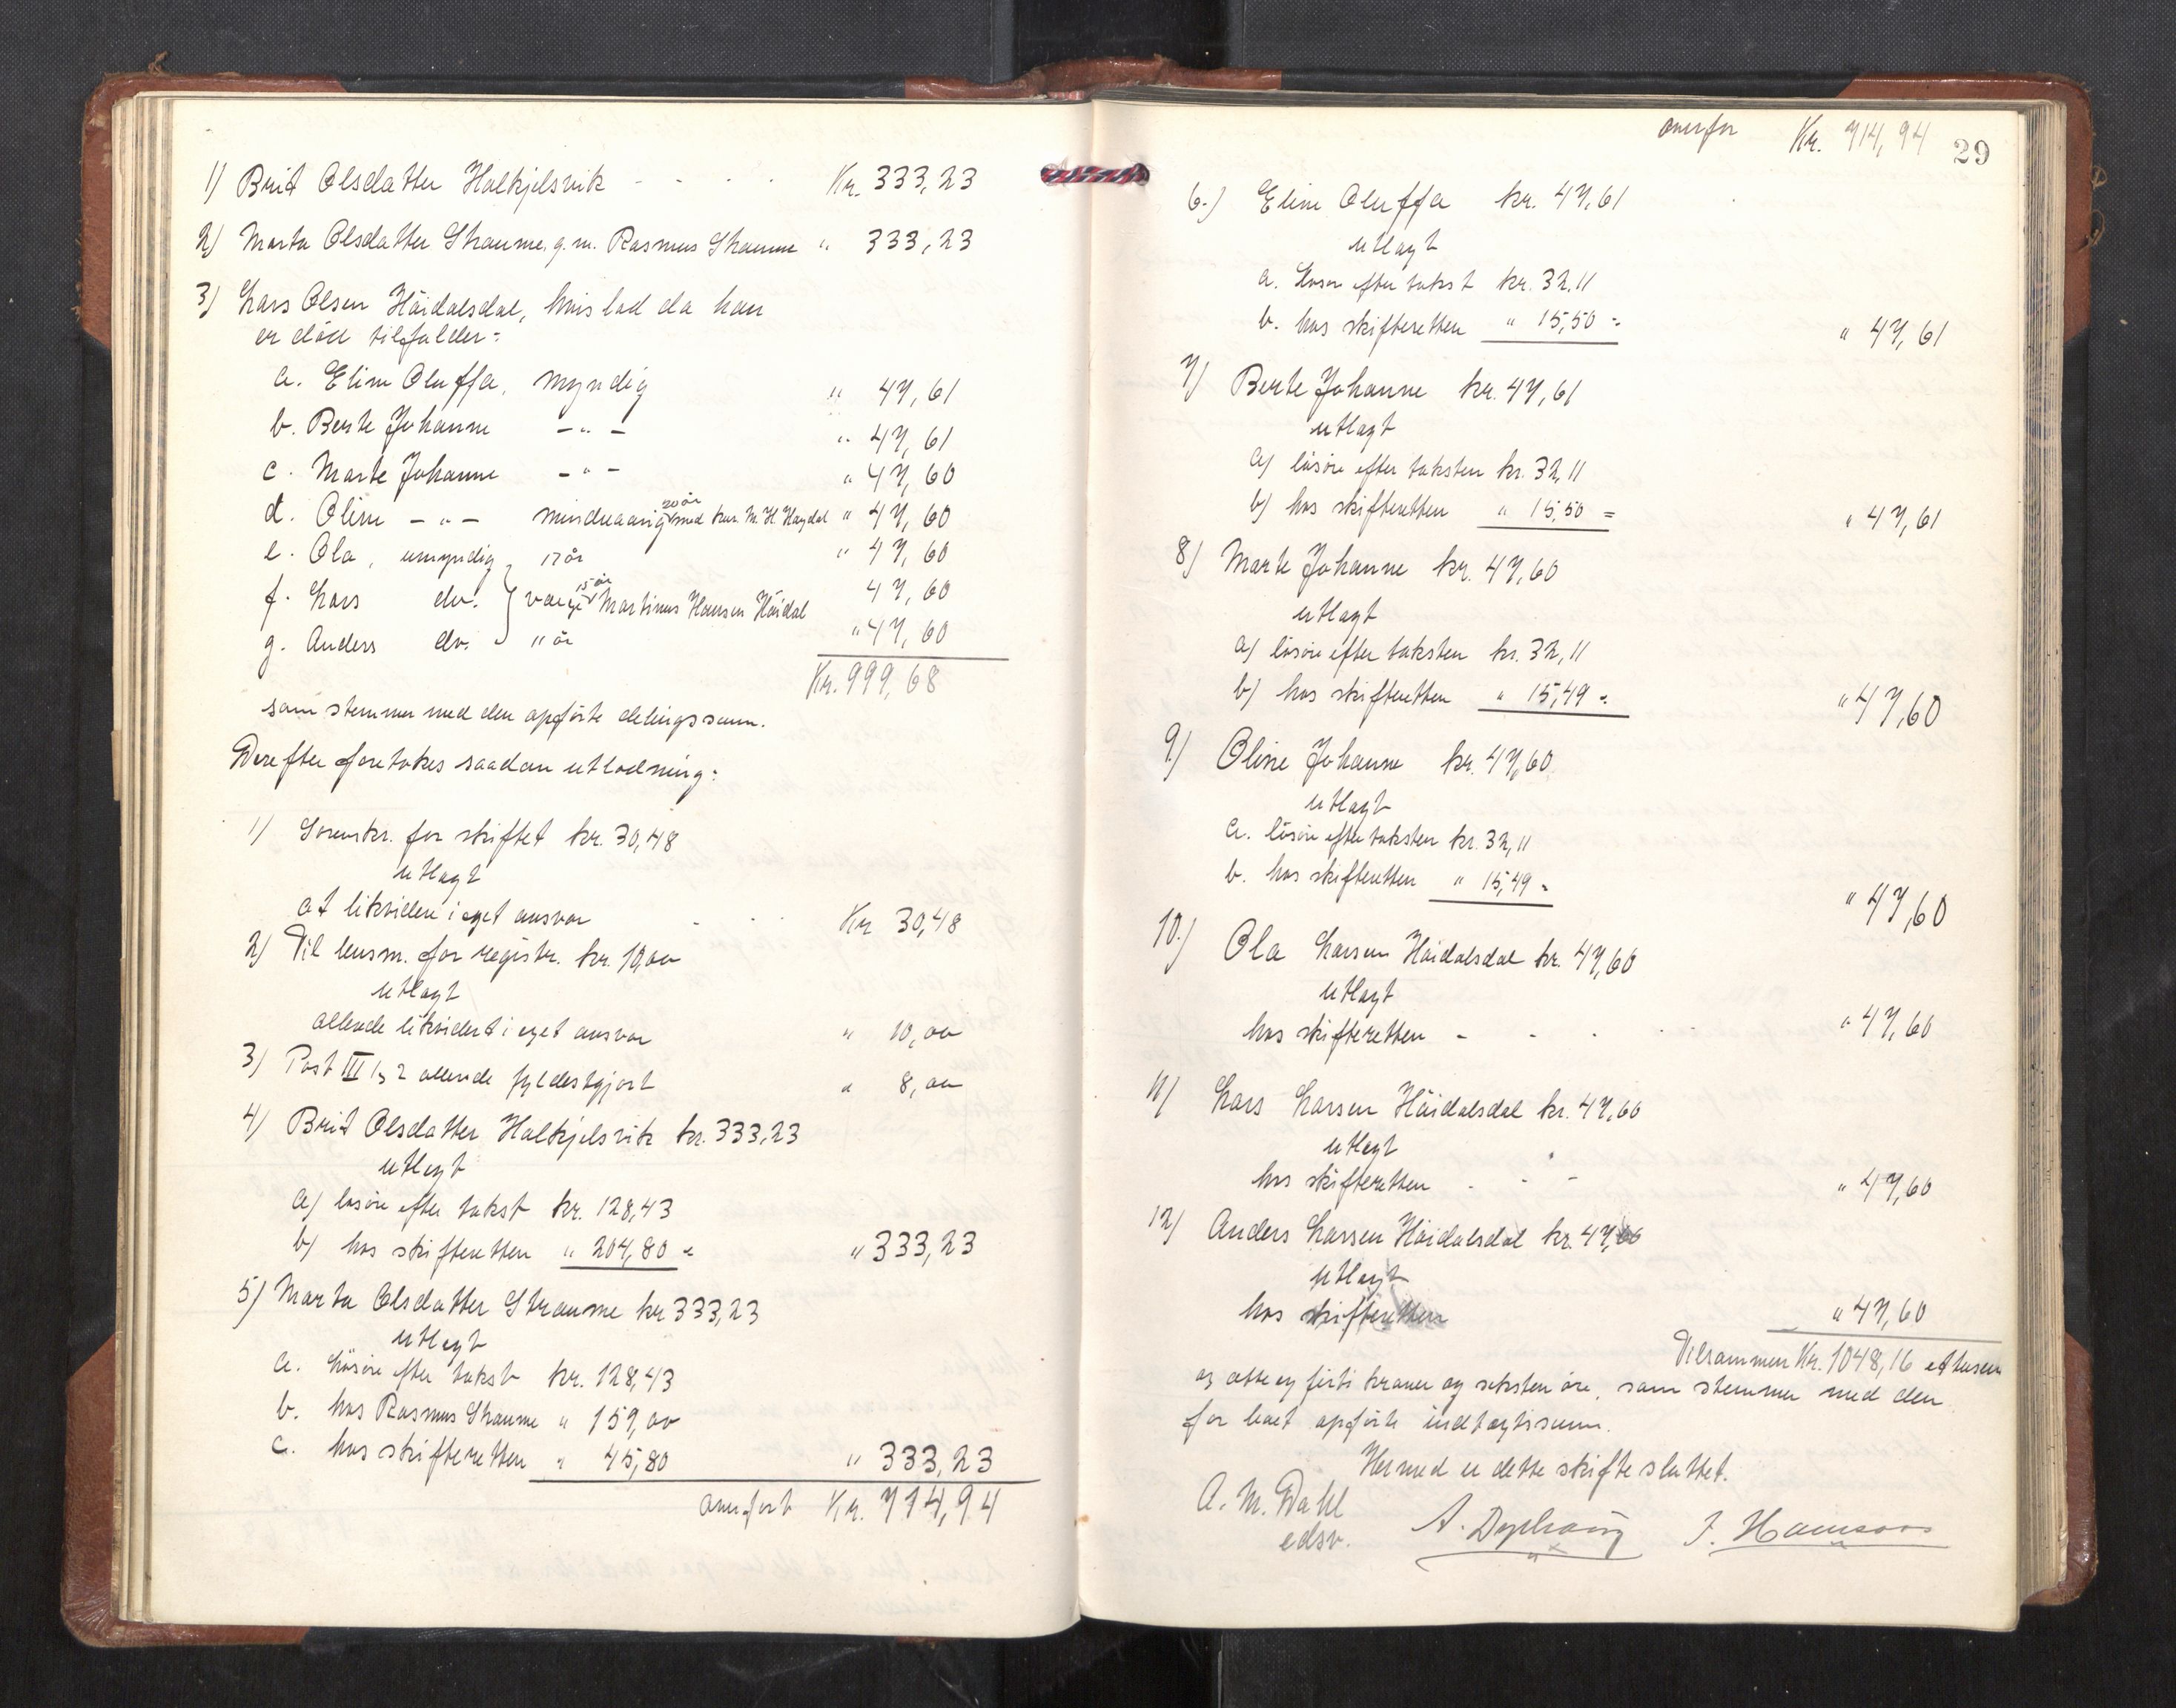 1) Brit Olsdatter Halkjelsvik - - - - Kr. 333,23
2) Marta Olsdatter Straume, g. m. Rasmus Straume " 333,23
3) Lars Olsen Höidalsdal, hvis lod da han
er död tilfalder:
a. Eline Oluffa, myndig " 47,61
b. Berte Johanne - " - " 47,61
c. Marte Johanne - " - " 47,60
20 år
d. Oline - " - mindreaarig med kur. M. H. Høydal " 47,60
e. Ola, umyndig 17 år " 47,60
15 år
f. Lars do. værge Martinus Hansen Höidal 47,60
g. Anders do. 11 år " 47,60
Kr. 999,68
som stemmer med den opförte delingssum.
Derefter foretokes saadan utlodning:
1) Sorenskr. for skiftet kr. 30,48
utlagt
at likvidere i eget ansvar - - - Kr 30,48
2) Til lensm. for registr. kr. 10,00
utlagt
allerede likvidert i eget ansvar " 10,00
3) Post III 1 & 2 allerede fyldestgjort " 8,00
4) Brit Olsdatter Halkjelsvik kr. 333,23
utlagt
a) lösöre efter takst kr. 128,43
b) hos skifteretten " 204,80 = " 333,23
5) Marta Olsdatter Straume kr 333,23
utlagt
a. lösöre efter takst kr. 128,43
b. hos Rasmus Straume " 159,00
c. hos skifteretten " 45,80 " 333,23
overfort Kr. 714,94
overfor Kr. 714,94
29
6.) Eline Oluffa kr. 47,61
utlagt
a. lösöre efter takst kr. 32,11
b. hos skifteretten " 15,50 = " 47,61
7) Berte Johanne kr. 47,61
utlagt
a) lösöre efter taksten kr. 32,11
b) hos skifteretten " 15,50 = " 47,61
8) Marte Johanne kr. 47,60
utlagt
a) lösöre efter taksten kr. 32,11
b) hos skifteretten " 15,49 = " 47,60
9) Oline Johanne kr. 47,60
utlagt
a. lösöre efter taksten kr. 32,11
b. hos skifteretten " 15,49 = " 47,60
10.) Ola Larsen Höidalsdal kr. 47,60
utlagt
hos skifteretten - - - - " 47,60
11) Lars Larsen Höidalsdal kr. 47,60
utlagt
hos skifteretten - - - " 47,60
12) Anders Larsen Höidalsdal kr. 47,60
utlagt
hos skifteretten " 47,60
Tilsammen Kr. 1048,16 et tusen
og otte og firti kroner og seksten öre, som stemmer med den
for boet opförte indtægtssum.
Hermed er dette skifte sluttet.
A. M. Dahl
edsv.